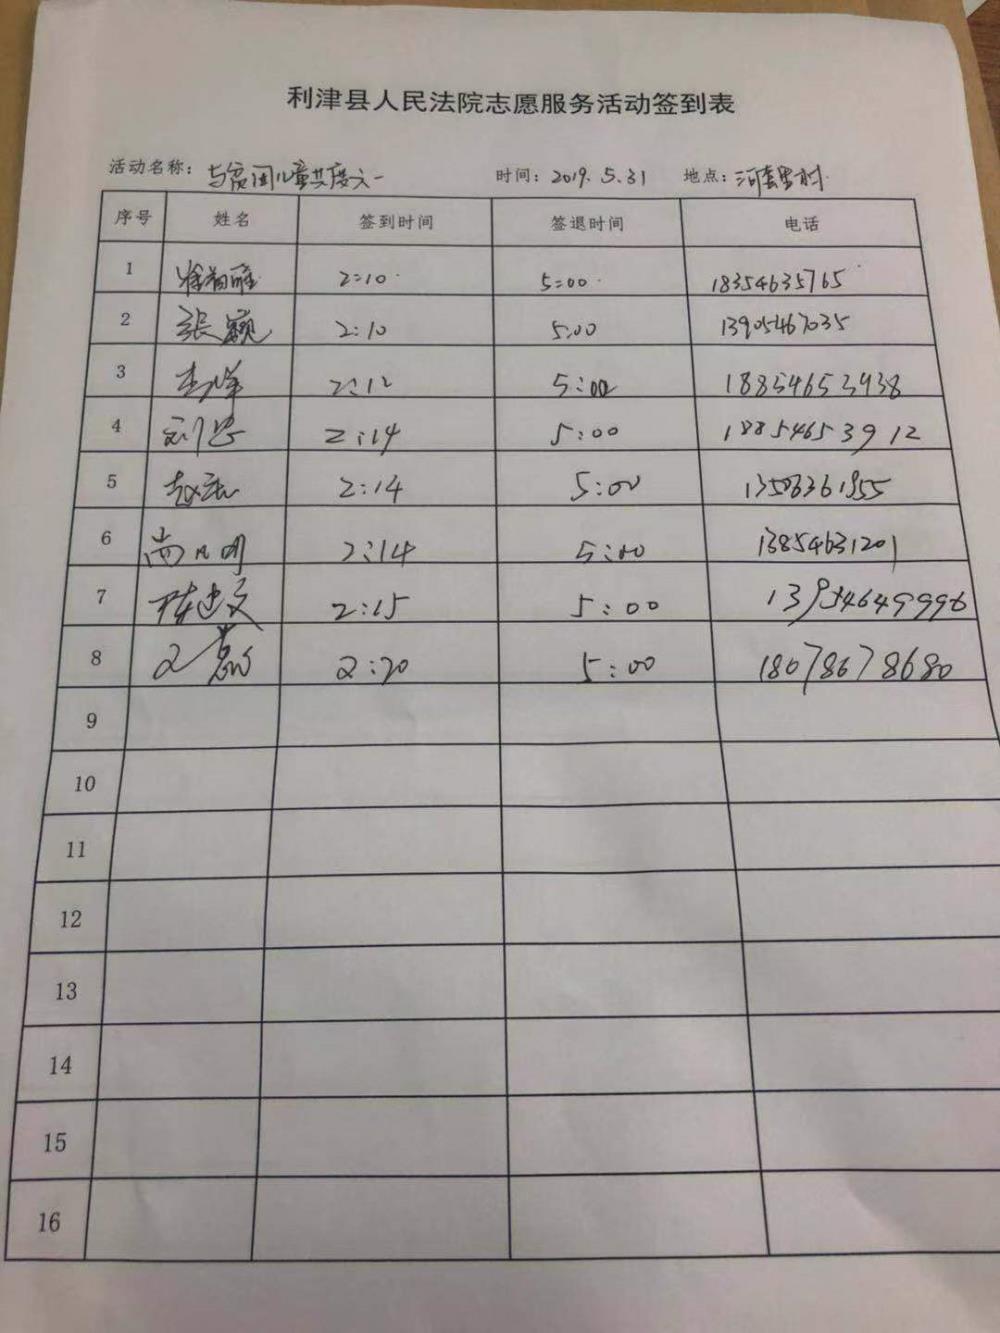 利津县人民法院志愿服务活动签到表
活动名称：与贫困儿童共度六一 时间：2019.5.31 地点：河套里村
序号 姓名 签到时间 签退时间 电话
1 2:10 5:00 18354635765
2 张颖 2:10 5:00 13905467035
3 2:12 5:00 18854653938
4 2:14 5:00 18854653912
5 2:14 5:00
6 尚凡明 2:14 5:00 13854631201
7 陈建文 2:15 5:00 13954649996
8 2:20 5:00 18078678680
9
10
11
12
13
14
15
16